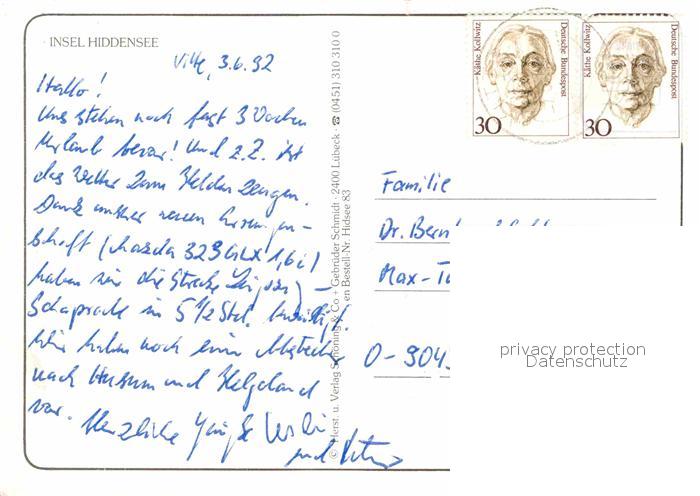 · INSEL HIDDENSEE
Vitte, 3.6.92
Hallo!
Uns stehen noch fast 3 Wochen
Urlaub bevor! Und z.Z. ist
das Wetter zum Helden zeugen.
Dank unserer neuen Errungen-
schaft (Mazda 323 GLX 1,6i)
haben wir die Strecke Leipzig -
Schaprode in 5 1/2 Std. bewältigt.
Wir haben noch einen Abstecher
nach Husum und Helgoland
vor. Herzliche Grüße
und
© Herst. u. Verlag Schöning & Co + Gebrüder Schmidt · 2400 Lübeck ☎ (0451) 310 310 0
en Bestell-Nr. Hidsee 83
Käthe Kollwitz
Deutsche Bundespost
30
Käthe Kollwitz
Deutsche Bundespost
30
Familie
Dr. Bern
Max-
O-904
privacy protection
Datenschutz